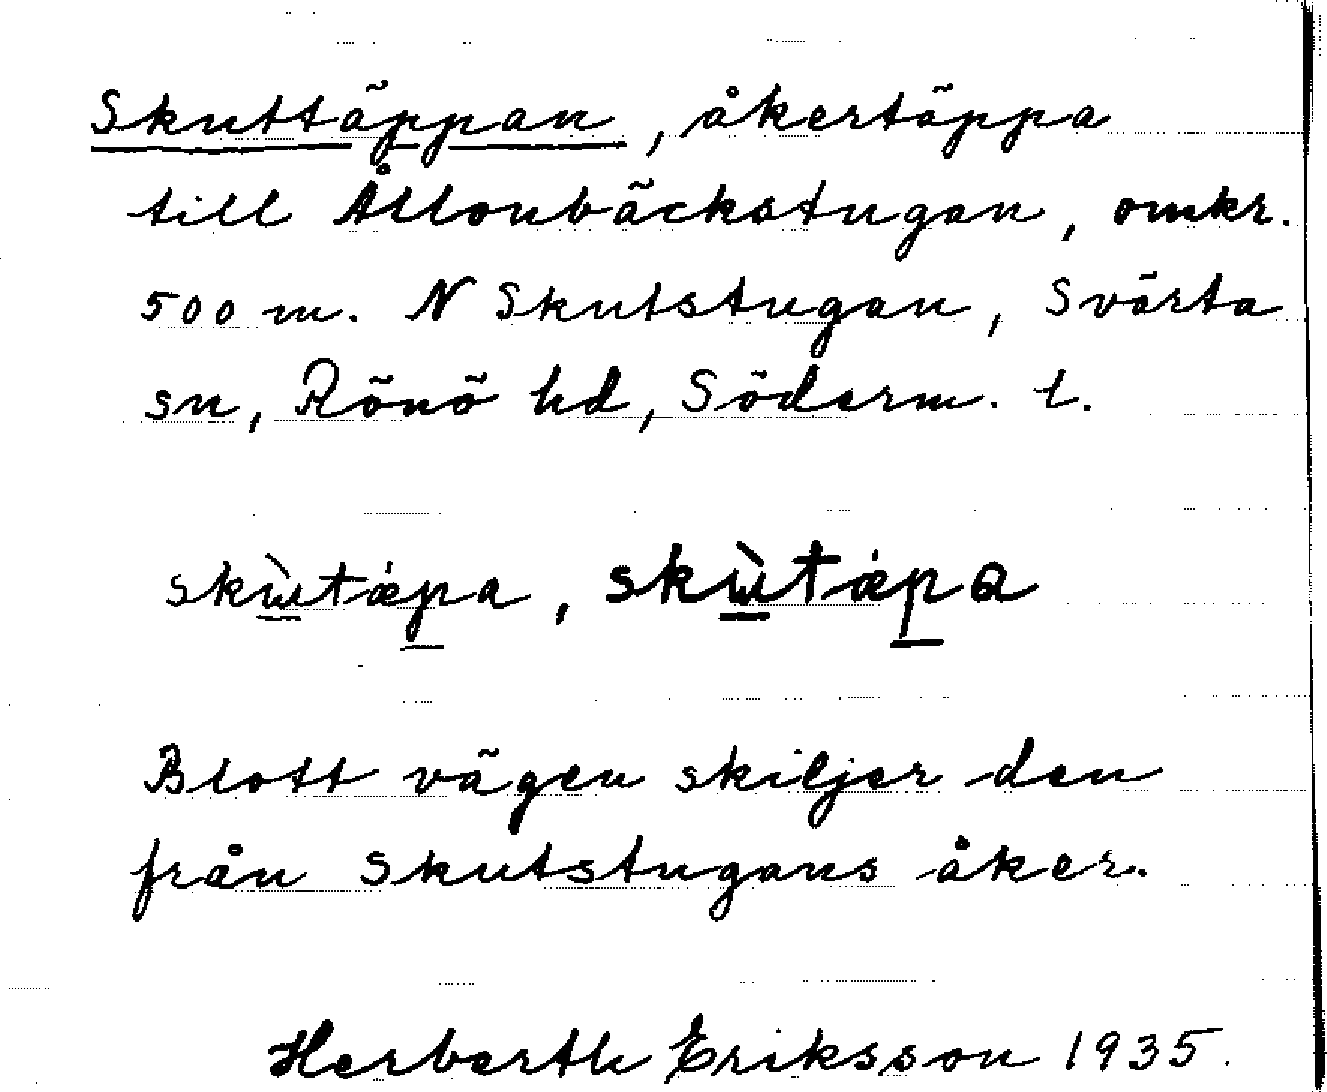 Skuttäppan, åkertäppa
till Ållonbäckstugan, omkr.
500 m. N Skutstugan, Svärta
sn, Rönö hd, Söderm. l.
skὼtǽpa, skὼtǽpa
Blott vägen skiljer den
från Skutstugans åker.
Herberth Eriksson 1935.